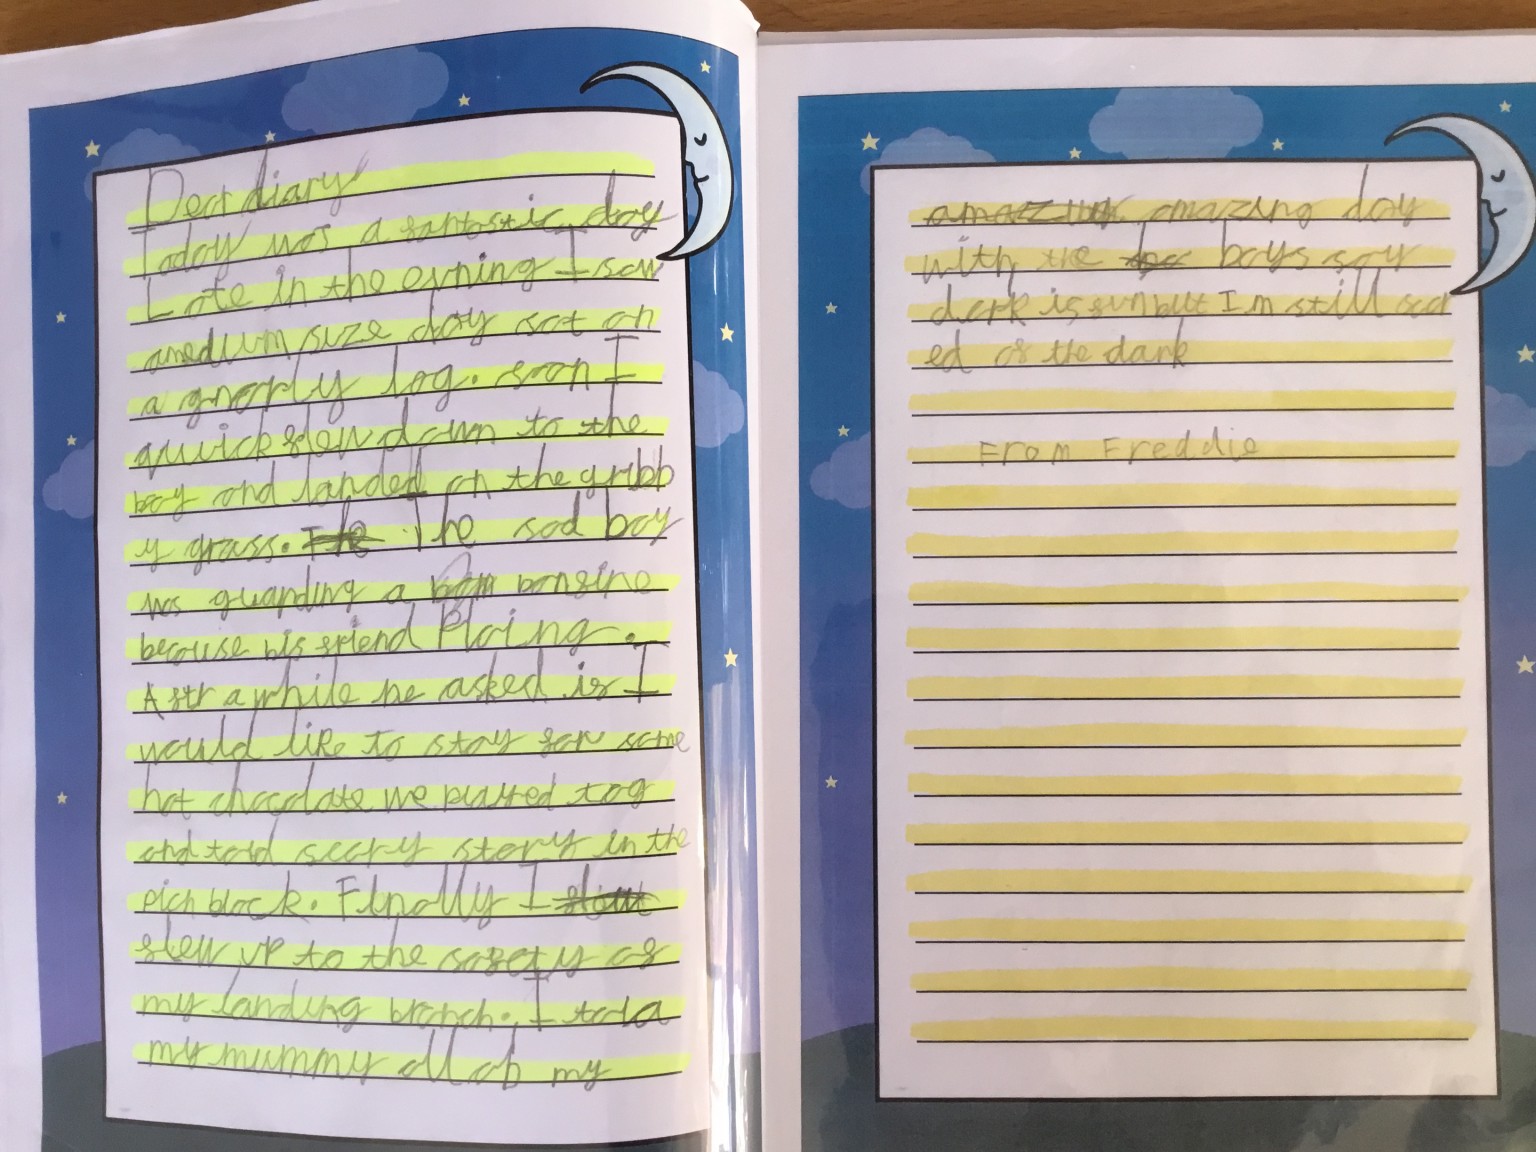 Dear diary
Today was a fantastic day
Late in the evning I saw
a medium size doy sat on
a gnarly log. soon I
quuick flew down to the
boy and landed on the grubb
y grass. The The sad boy
was guarding a bonfine
because his friend
Aftr a while he asked if I
would like to stay for some
hot chocolate we played tog
and told scary story in the
pich black. Finally I
flew up to the safety of
my landing branch. I told
my mummy all ab my
amazing amazing day
with the boys say
dark is fun but I'm still scar
ed of the dark
From Freddie